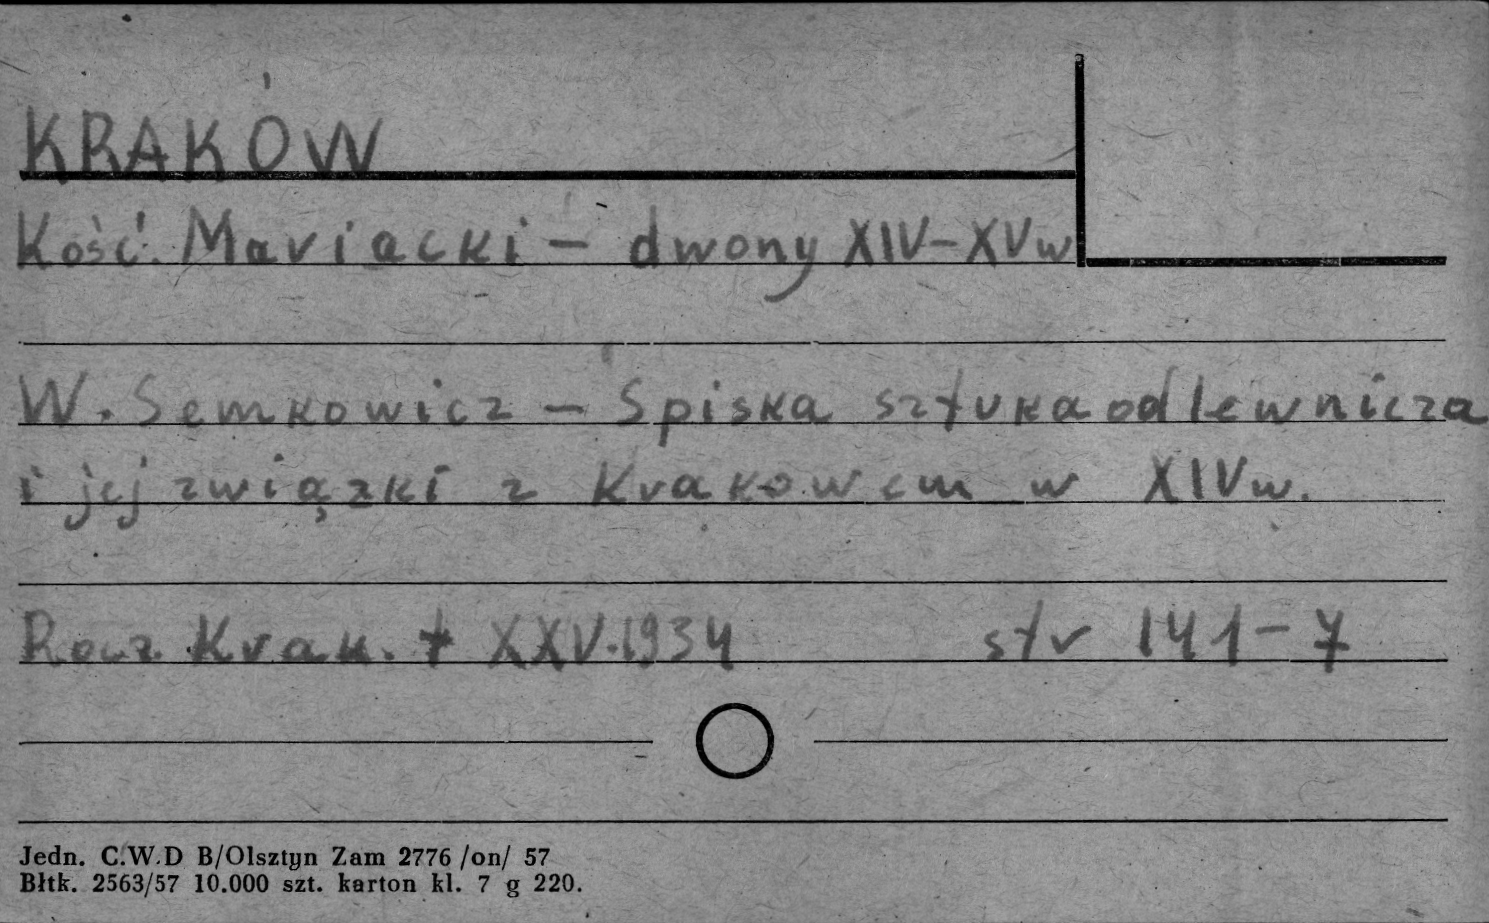 KRAKÓW
Kość. Mariacki – dwony XIV–XVw
W. Semkowicz – Spiska sztuka odlewnicza
i jej związki z Krakowem w XIVw.
Rocz. Krak. t XXV.1934 str 141–7
Jedn. C.W.D B/Olsztyn Zam 2776 /on/ 57
Błtk. 2563/57 10.000 szt. karton kl. 7 g 220.